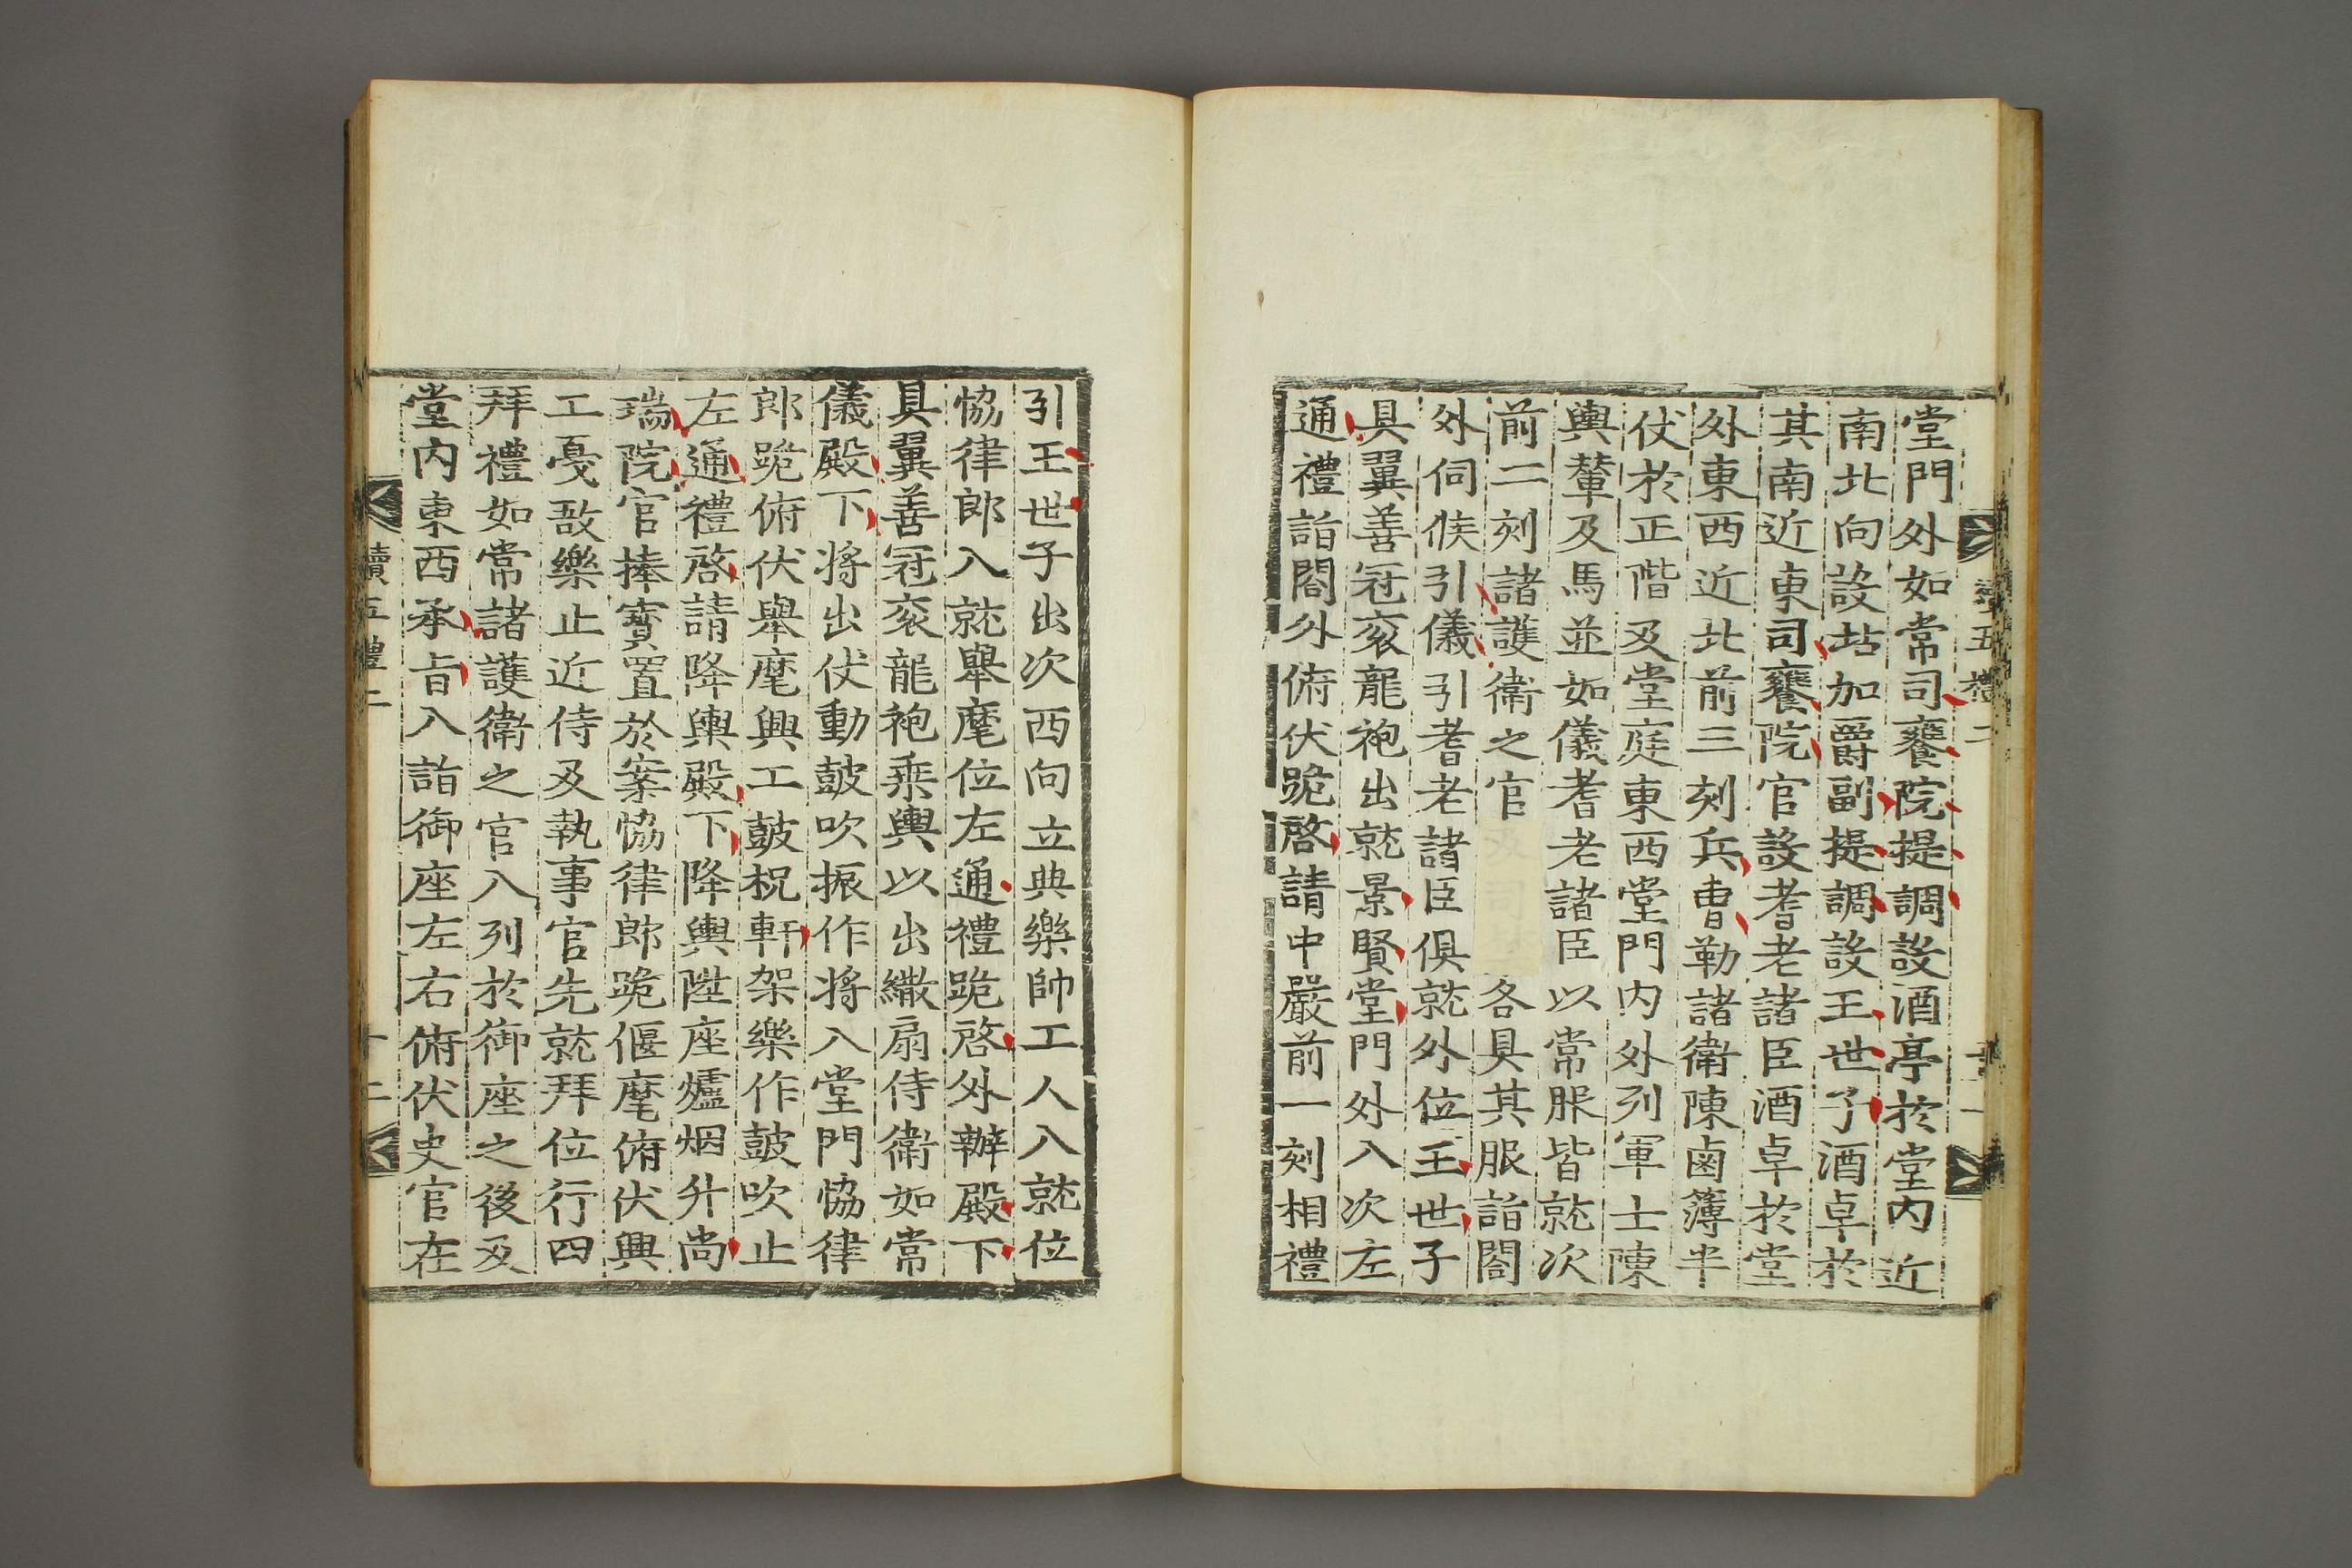 堂門外如常司饔院提調設酒亭於堂內近
南北向設坫加爵副提調設王世子酒卓於
其南近東司饔院官設耆老諸臣酒卓於堂
外東西近北前三刻兵曹勒諸衛陳鹵簿半
仗於正階及堂庭東西堂門內外列軍士陳
輿輦及馬並如儀耆老諸臣以常服皆就次
前二刻諸護衛之官各具其服詣閤
外伺候引儀引耆老諸臣俱就外位王世子
具翼善冠袞龍袍出就景賢堂門外入次左
通禮詣閤外俯伏跪啓請中嚴前一刻相禮
引王世子出次西向立典樂帥工人入就位
協律郎入就舉麾位左通禮跪啓外辦殿下
具翼善冠袞龍袍乘輿以出繖扇侍衛如常
儀殿下將出仗動鼓吹振作將入堂門協律
郎跪俯伏舉麾興工鼓柷軒架樂作鼓吹止
左通禮啓請降輿殿下降輿陞座爐烟升尚
瑞院官捧寶置於案協律郎跪偃麾俯伏興
工戞敔樂止近侍及執事官先就拜位行四
拜禮如常諸護衛之官入列於御座之後及
堂內東西承旨入詣御座左右俯伏史官在
續五禮二
十二